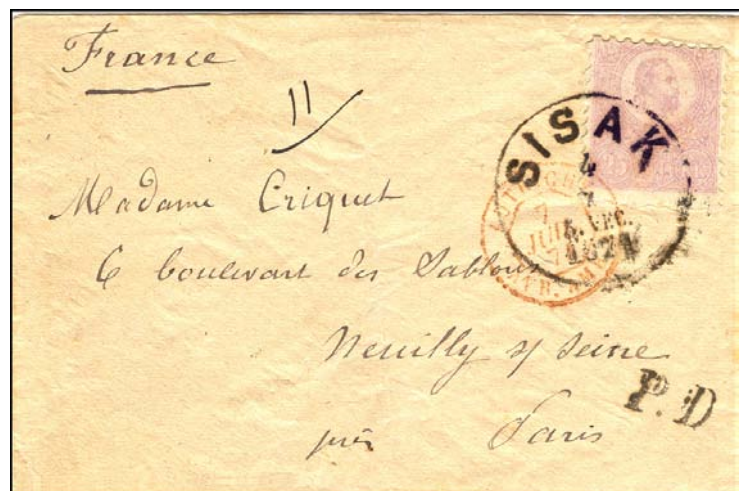 France
11
SISAK
4
7
VEC.
187
JUIL
Madame Criquet
6 boulevart des Sablons
Neuilly s/ Seine
P.D
près Paris